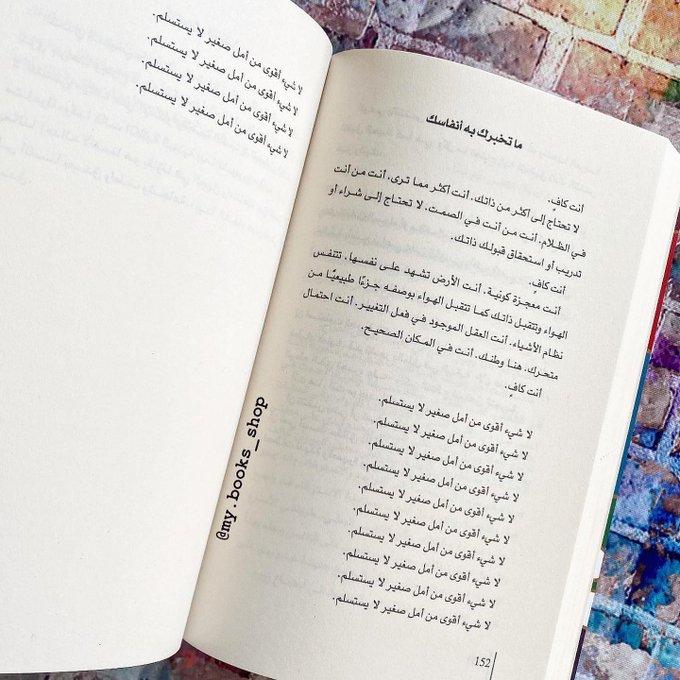 ما تخبرك به أنفاسك
أنت كافٍ.
لا تحتاج إلى أكثر من ذاتك. أنت أكثر مما ترى. أنت من أنت
في الظلام. أنت من أنت في الصمت. لا تحتاج إلى شراء او
تدريب أو استحقاق قبولك ذاتك.
أنت كافٍ.
أنت معجزة كونية. أنت الأرض تشهد على نفسها. تتنفس
الهواء وتتقبل ذاتك كما تتقبل الهواء بوصفه جزءًا طبيعيًا من
نظام الأشياء. أنت العقل الموجود في فعل التغيير. أنت احتمال
متحرك. هنا وطنك. أنت في المكان الصحيح.
أنت كافٍ.
لا شيء أقوى من أمل صغير لا يستسلم.
لا شيء أقوى من أمل صغير لا يستسلم.
لا شيء أقوى من أمل صغير لا يستسلم.
لا شيء أقوى من أمل صغير لا يستسلم.
لا شيء أقوى من أمل صغير لا يستسلم.
لا شيء أقوى من أمل صغير لا يستسلم.
لا شيء أقوى من أمل صغير لا يستسلم.
لا شيء أقوى من أمل صغير لا يستسلم.
لا شيء أقوى من أمل صغير لا يستسلم.
لا شيء أقوى من أمل صغير لا يستسلم.
152
لا شيء أقوى من أمل صغير لا يستسلم.
لا شيء أقوى من أمل صغير لا يستسلم.
لا شيء أقوى من أمل صغير لا يستسلم.
لا شيء أقوى من أمل صغير لا يستسلم.
@my.books_shop